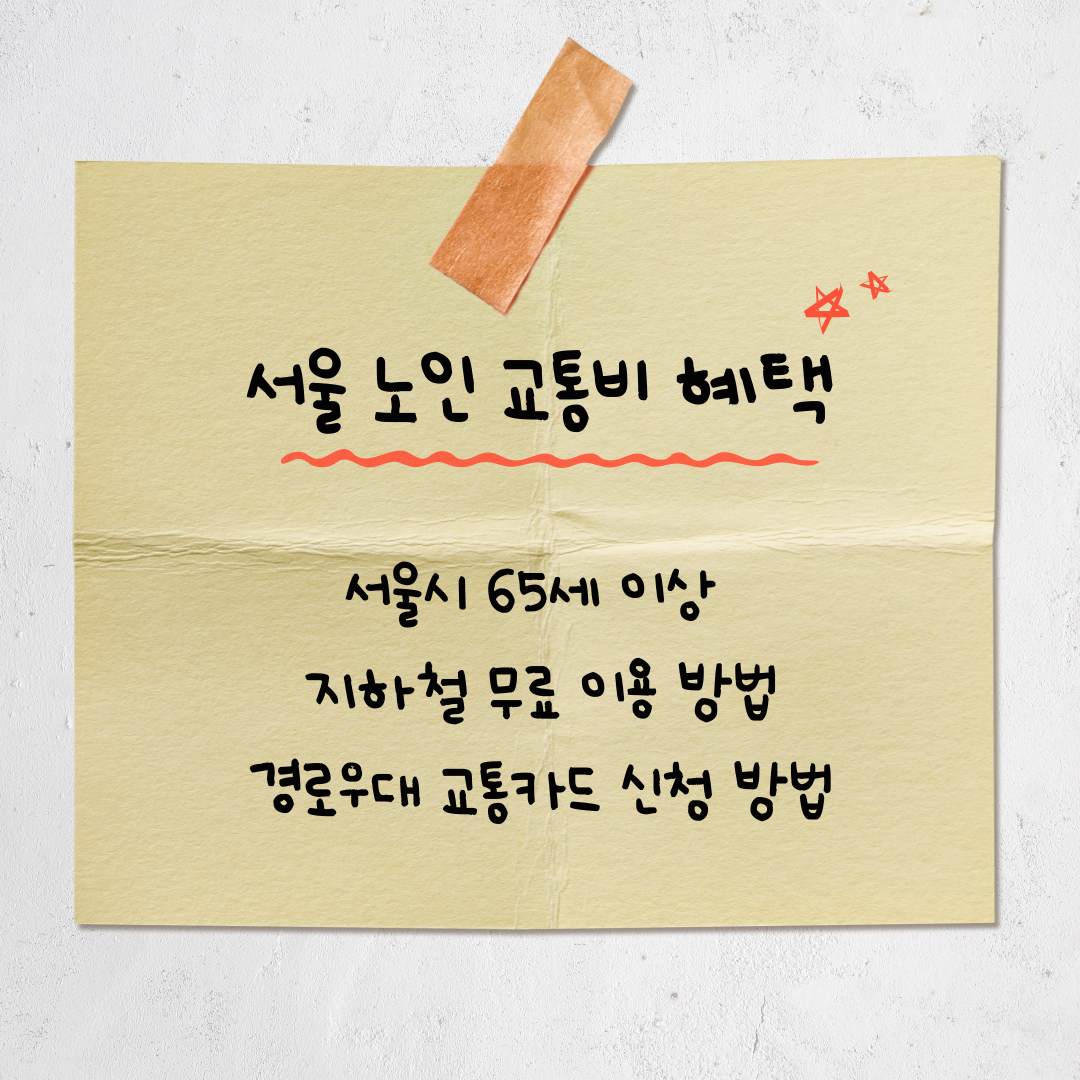 서울 노인 교통비 혜택
서울시 65세 이상
지하철 무료 이용 방법
경로우대 교통카드 신청 방법